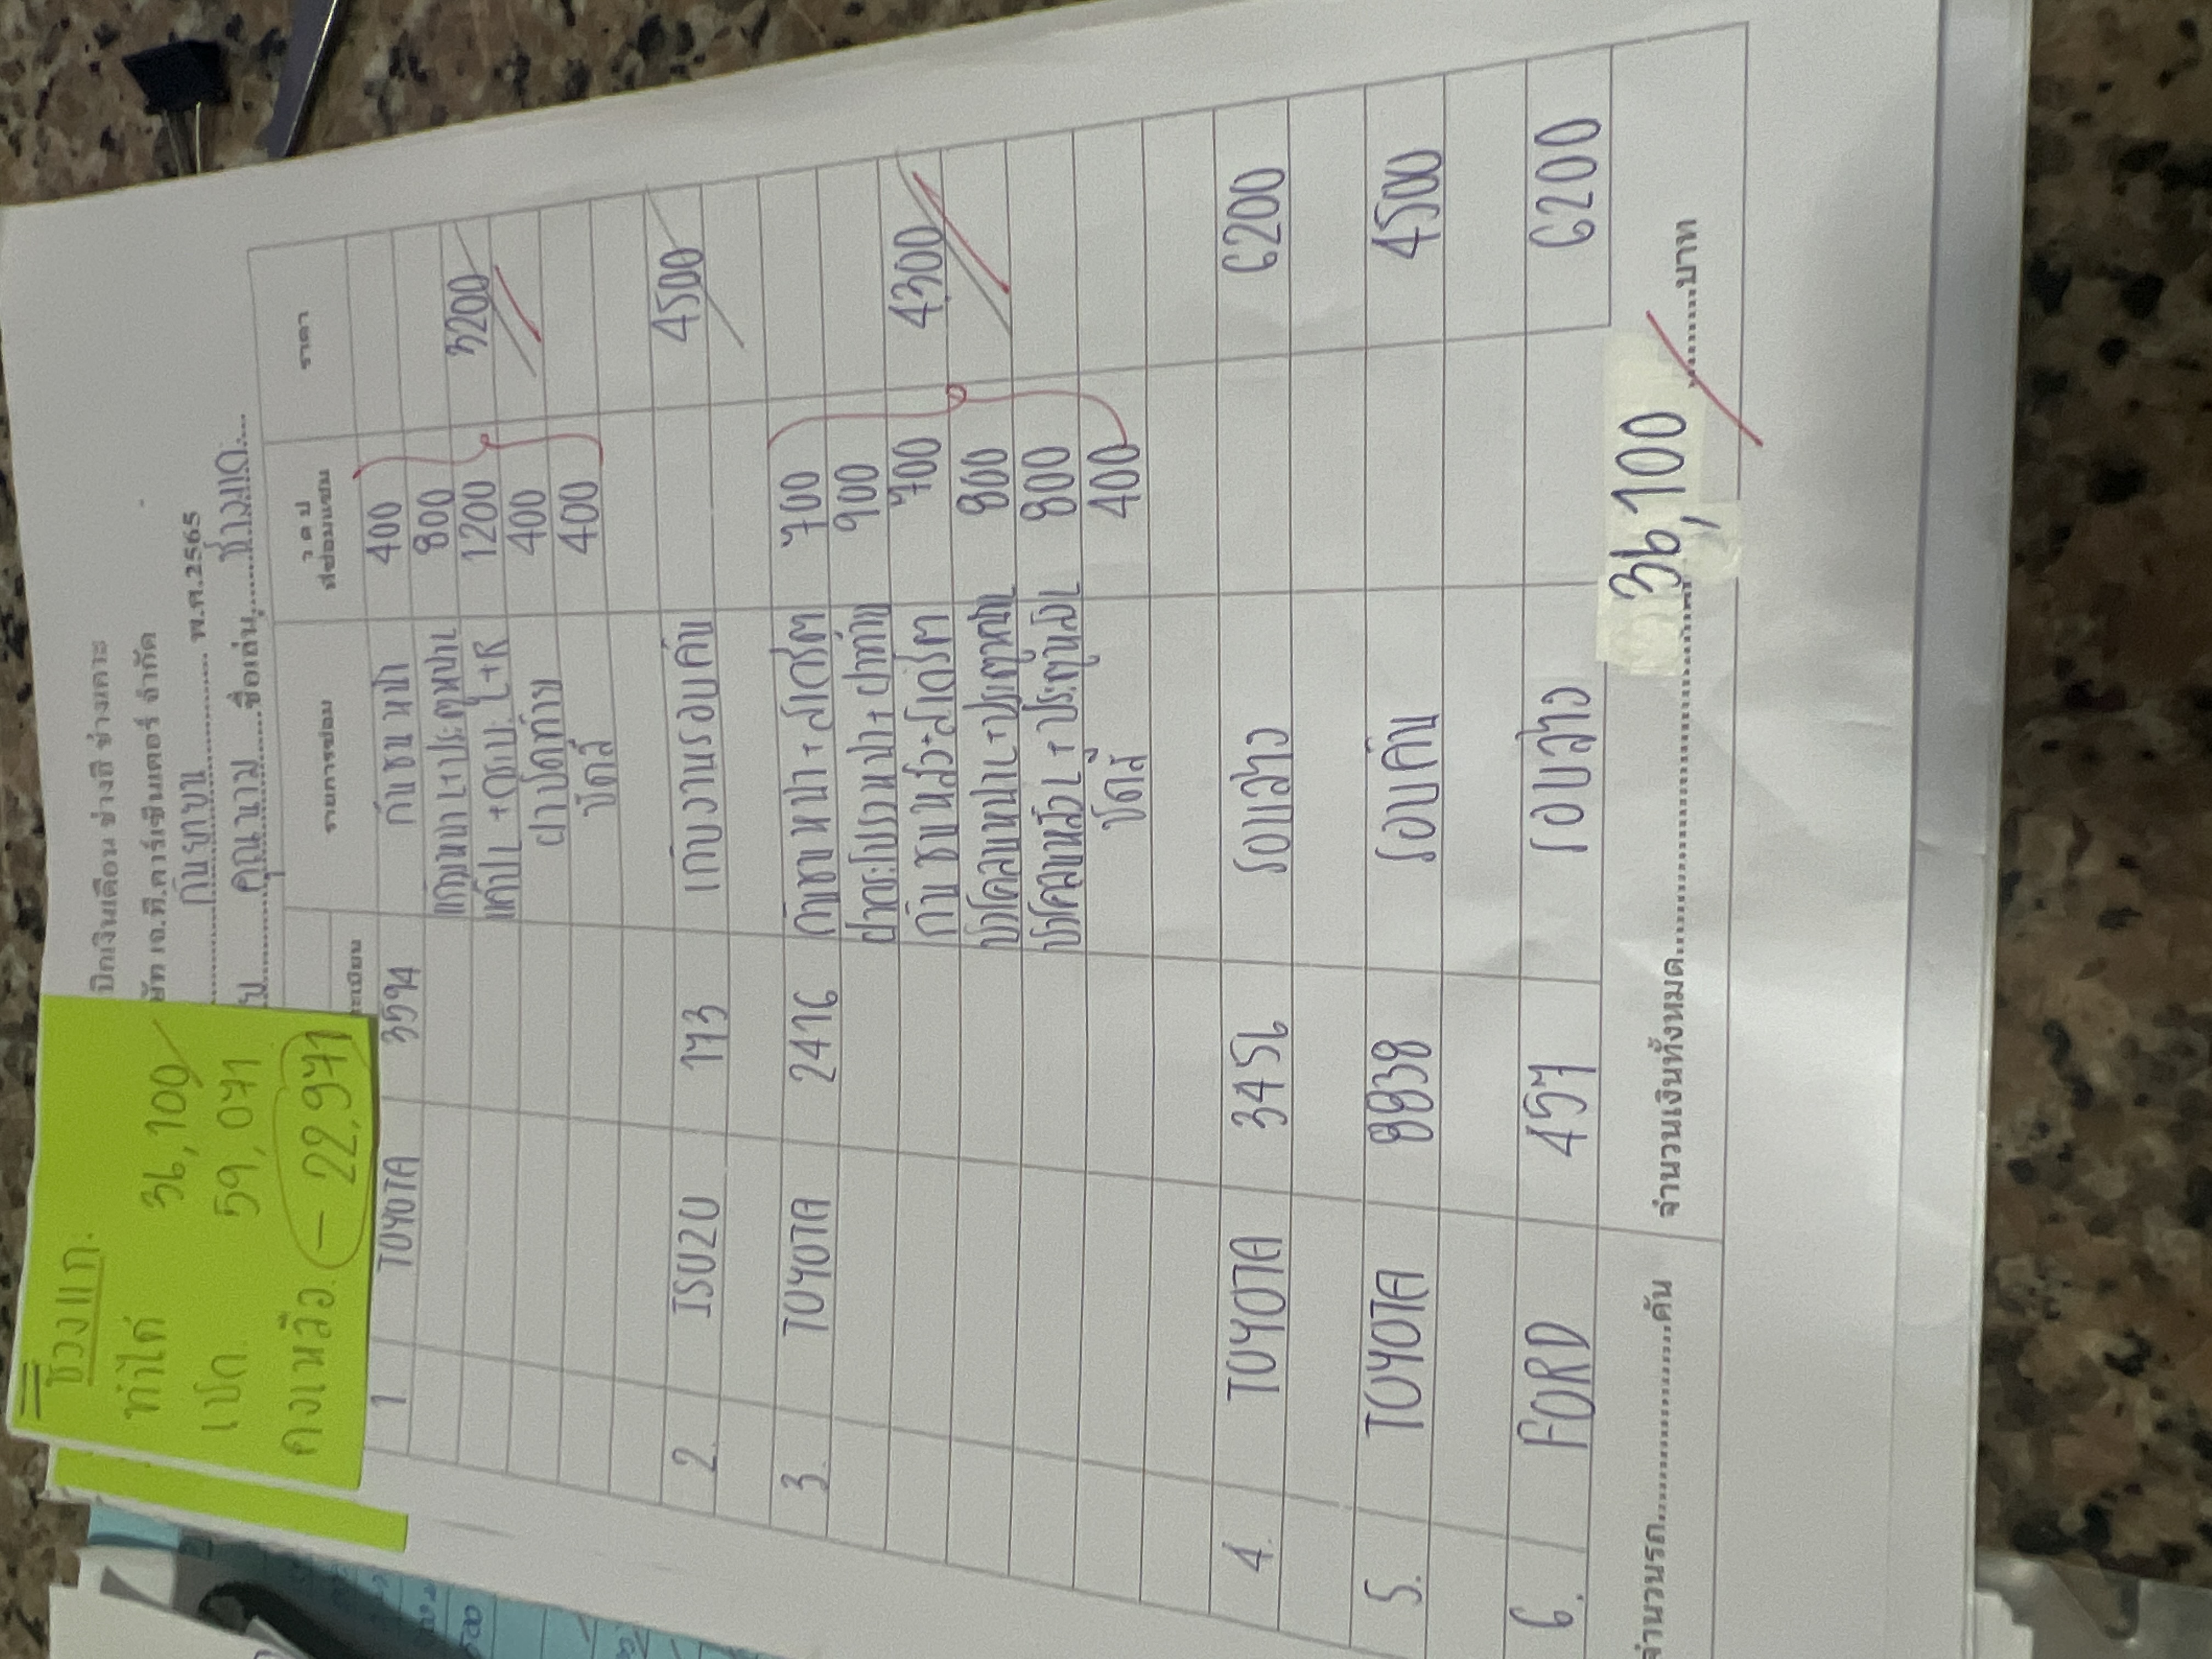 ช่างแก.
ทำได้ 36,100
เบิก. 59,071
คงเหลือ. - 22,971
บิกเงินเดือน ช่างสี ช่างเคาะ
ษัท เจ.ที.คาร์เซ็นเตอร์ จำกัด
กันยายน พ.ศ.2565
คุณนาม ชื่อเล่น ช่างแก
ทะเบียน รายการซ่อม ว ด ป ราคา
ที่ซ่อมแซม
1 TOYOTA 3594 กันชนหน้า 400
แก้มหน้า L+ประตูหน้าL 800
แค็ปL +กระบะ L+R 1200 3200
ฝาปิดท้าย 400
ขัดสี 400
2. ISUZU 173 เก็บงานรอบคัน 4500
3. TOYOTA 2416 กันชนหน้า+สเกิร์ต 700
ฝากระโปรงหน้า+ฝาท้าย 900
กันชนหลัง+สเกิร์ต 700 4,300
บังโคลนหน้าL+ประตูหน้าL 800
บังโคลนหลังL+ประตูหลังL 800
ขัดสี 400
4. TOYOTA 3456 รอบล่าง 6200
5. TOYOTA 8838 รอบคัน 4500
6. FORD 457 รอบล่าง 6200
จำนวนรถ............คัน จำนวนเงินทั้งหมด............36,100............บาท